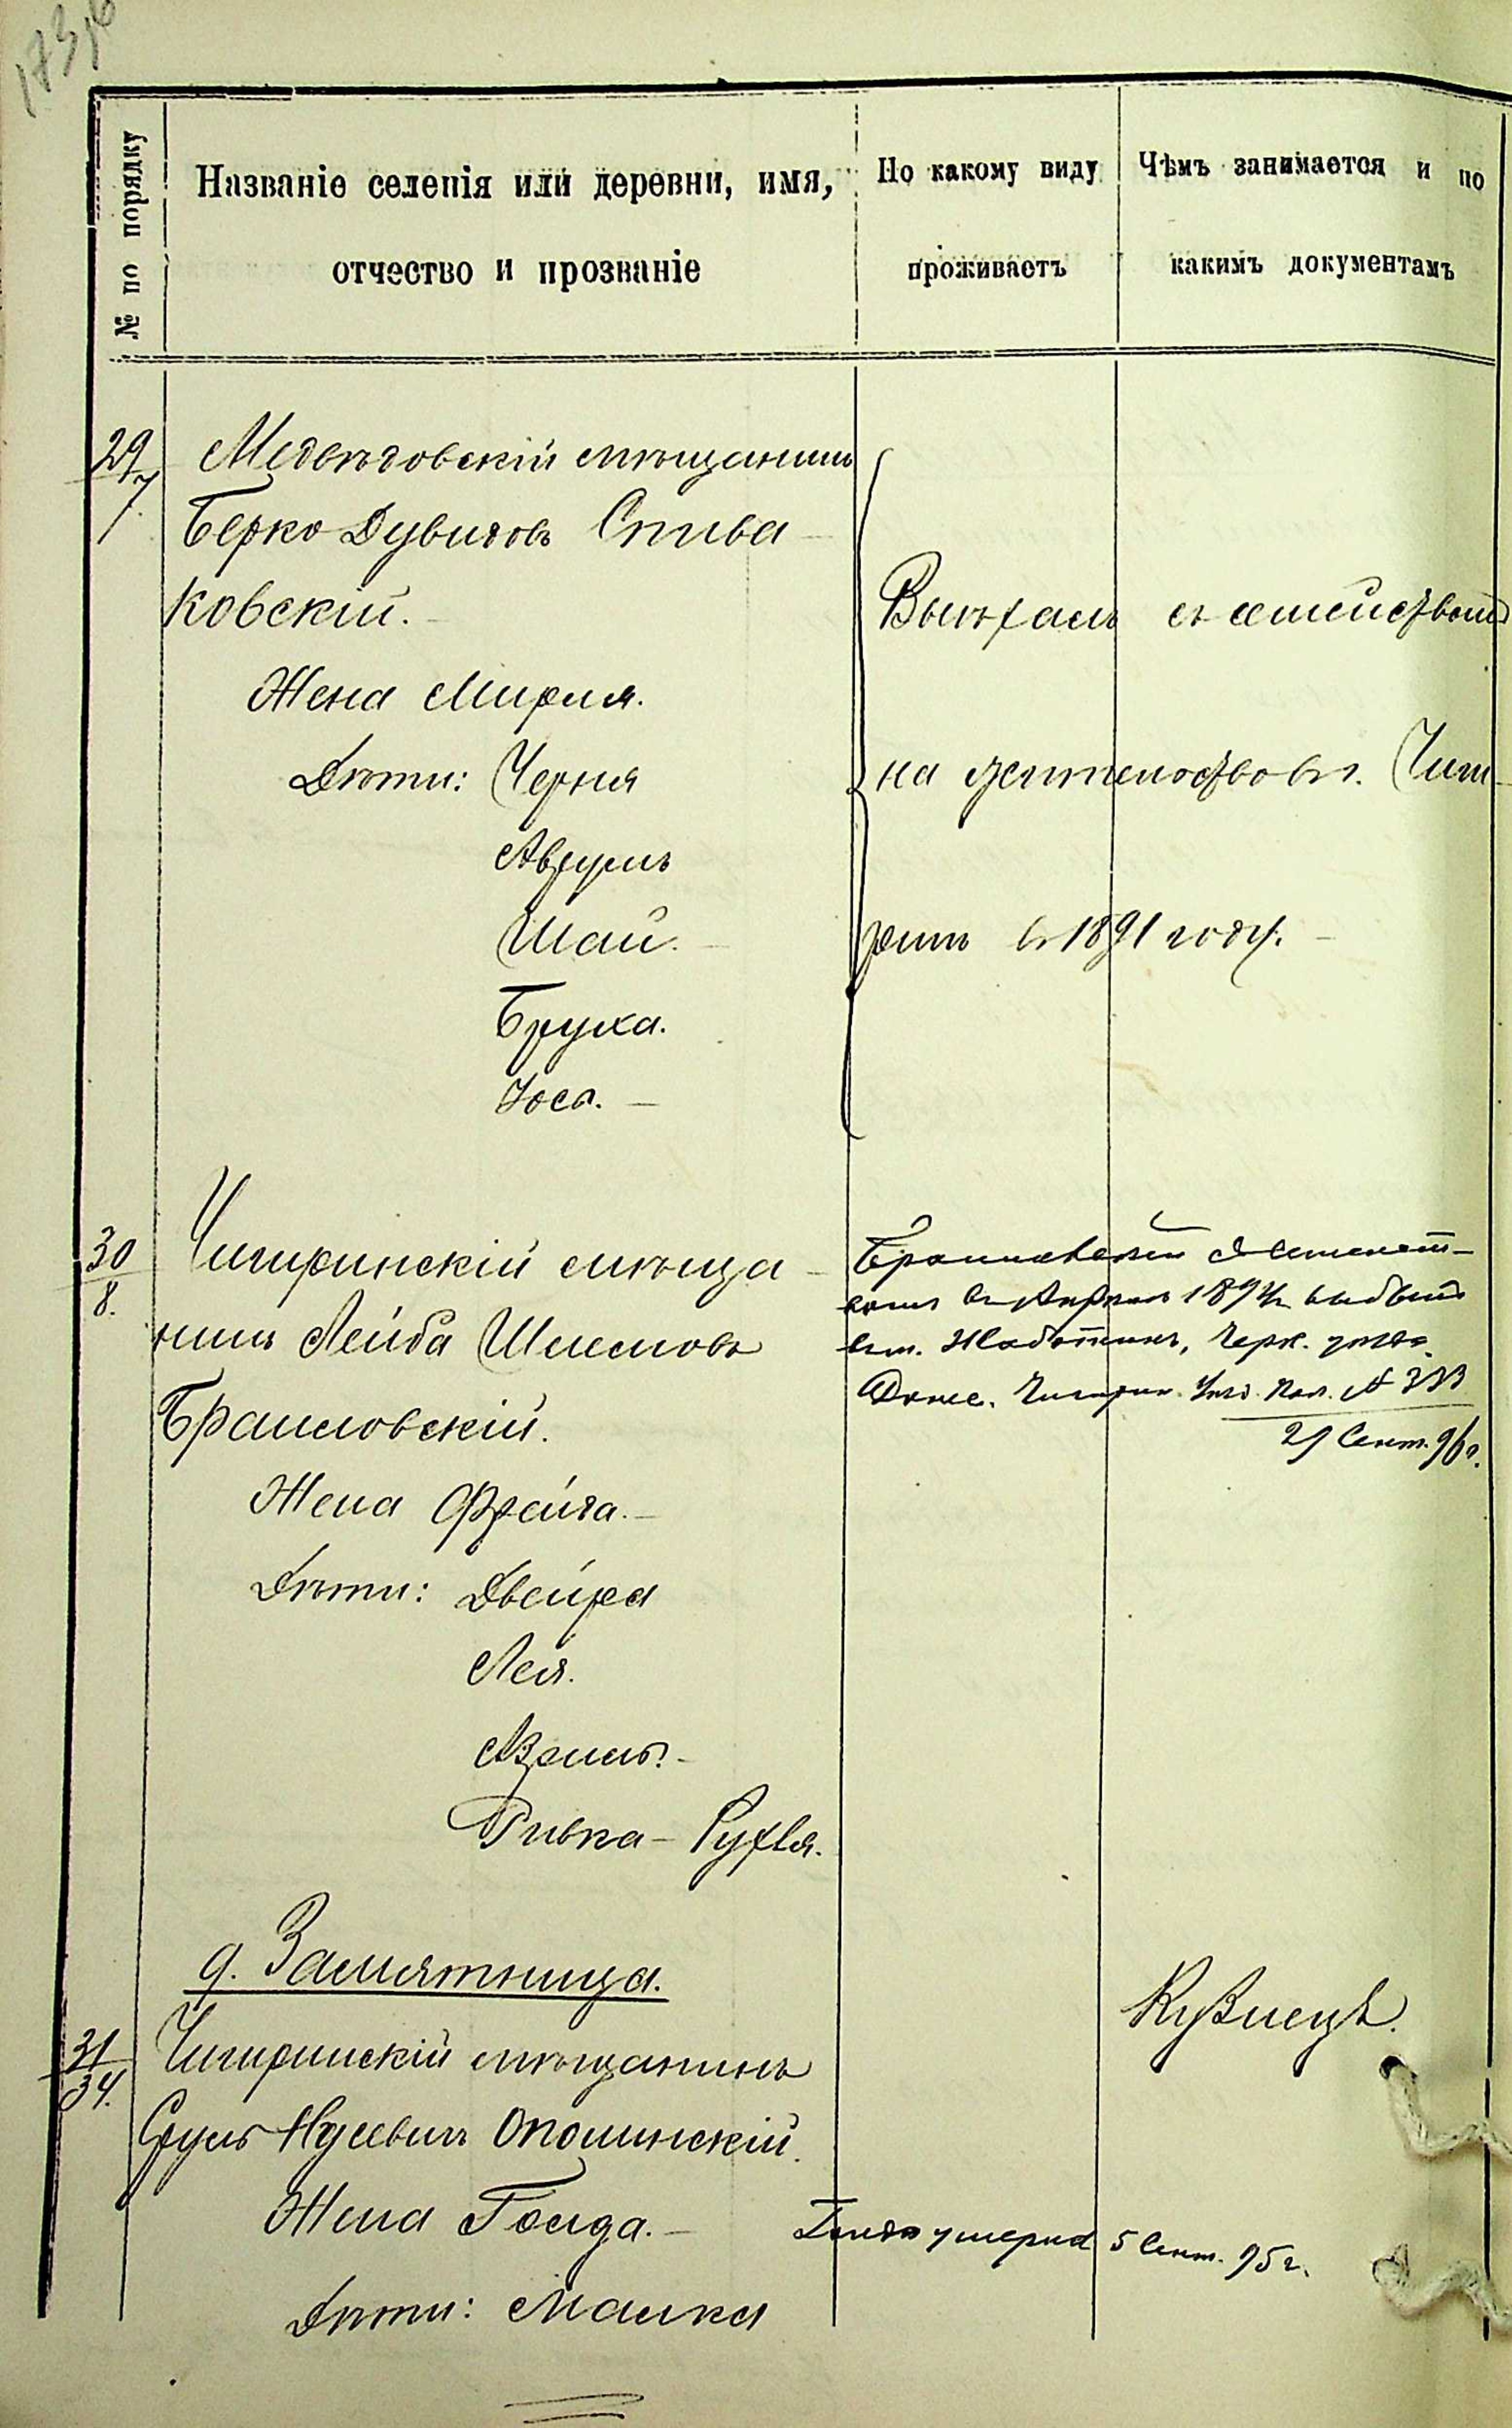 173 об
№ по порядку
Названіе селенія или деревни, имя,
отчество и прозваніе
По какому виду
проживаетъ
Чѣмъ занимается и по
какимъ документамъ
29/7.
Медвѣдовскій мѣщанинъ
Берко Дувидовъ Спива-
ковскій.
Жена Мирля.
Дѣти: Черня
Аврумъ
Шай.
Бруха.
Іось.
Выѣхалъ съ семействомъ
на жительство въ г. Чиги-
ринъ въ 1891 году.
30/8.
Чигиринскій мѣща-
нинъ Лейба Шлемовъ
Браиловскій.
Жена Фрейда.
Дѣти: Двейра
Лея.
Азриль.
Ривка-Рухля.
Браиловскій съ семейст-
вомъ въ Апрѣлѣ 189 г. выбылъ
въ м. Жаботинъ, Черк. уѣзда.
Донес. Чигирин. Уѣзд. Пол. № 333
21 Сент. 96 г.
д. Замятница.
31/34.
Чигиринскій мѣщанинъ
Сруль Нусевичъ Ополинскій.
Жена Голда.
Дѣти: Малка
Кузнецъ.
Голда умерла 5 Сент. 95 г.